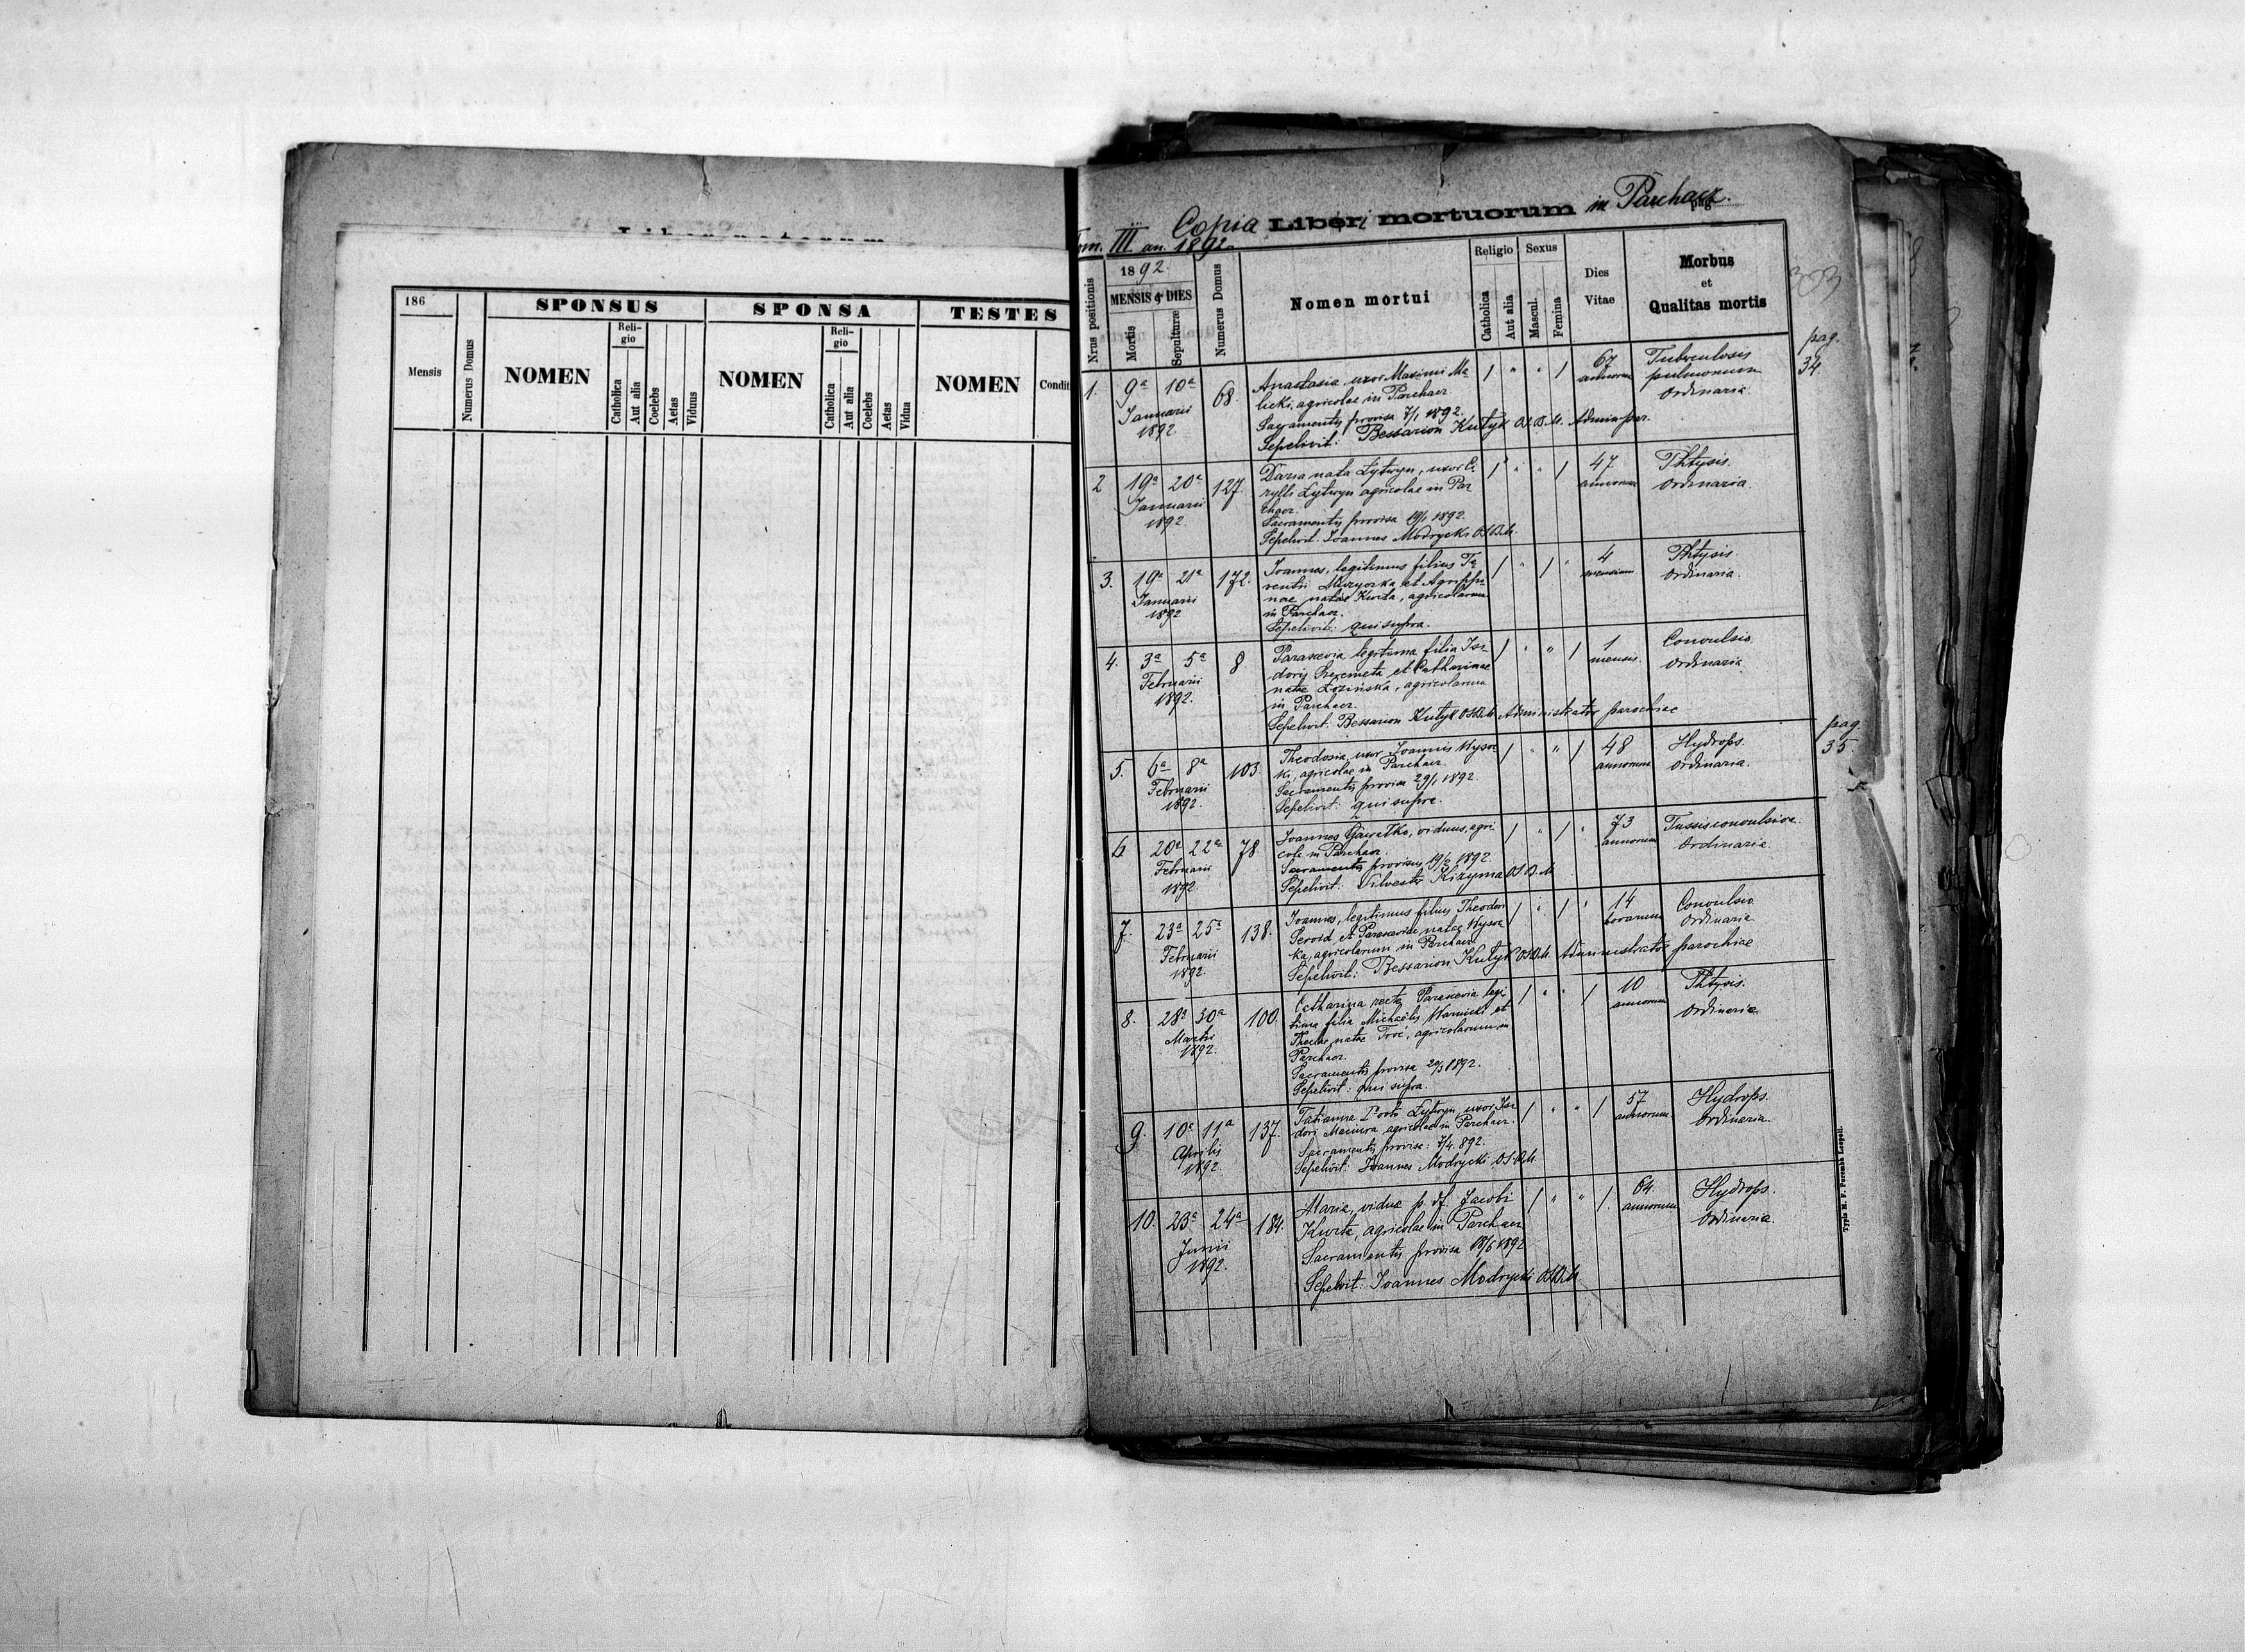 186
Mensis
Numerus Domus
SPONSUS
NOMEN
Reli-
gio
Catholica
Aut alia
Coelebs
Aetas
Viduus
SPONSA
NOMEN
Reli-
gio
Catholica
Aut alia
Coelebs
Aetas
Vidua
TESTES
NOMEN
Condit
Copia Libri mortuorum in Parchacz.
pag
Tom. III an. 1892.
Nrus positionis
1892.
MENSIS & DIES
Mortis
Sepulturæ
Numerus Domus
Nomen mortui
Religio
Catholica
Aut alia
Sexus
Mascul.
Femina
Dies
Vitae
Morbus
et
Qualitas mortis
303
pag.
34.
1. 9ª 10ª 68. Anastasia, uxor Maximi Ma- / " " / 67 Tuberculosis
Januarii licki, agricolae in Parchacz annorum pulmonum
1892. Sacramentis provisa 7/1 1892. ordinaria.
Sepelivit: Bessarion Kutyk O.S.B.M. Admin. par.
2 19ª 20ª 127. Daria nata Łytwyn, uxor Cy- / " " / 47 Phtysis.
Januarii rylli Łytwyn agricolae in Par annorum ordinaria.
1892. chacz.
Sacramentis provisa 19/1 1892.
Sepelivit: Joannes Modrycki O.S.B.M.
3. 19ª 21ª 172. Joannes, legitimus filius Te- / " / " 4 Phtysis.
Januarii rentii et Agrippi- mensium ordinaria.
1892 nae natae Kurta, agricolarum
in Parchacz.
Sepelivit: qui supra.
4. 3ª 5ª 8. Parascevia legitima filia Isi- / " " / 1 Convulsio
Februarii doris et Catharinae mensis. ordinaria
1892. natae Łozińska, agricolarum
in Parchacz.
Sepelivit: Bessarion Kutyk O.S.B.M. Administrator parochiae
pag.
35.
5. 6ª 8ª 103 Theodosia, uxor Joannis Wysoc / " " / 48 Hydrops.
Februarii ki, agricolae in Parchacz. annorum ordinaria.
1892. Sacramentis provisa 29/1 1892.
Sepelivit: qui supra.
6 20ª 22ª 78. Joannes Gawałko, viduus, agri / " / " 73 Tussis convulsiva.
Februarii cola in Parchacz. annorum ordinaria
1892 Sacramentis provisus 19/2 1892
Sepelivit: Silvester Kizyma O.S.B.M.
7. 23ª 25ª 138. Joannes, legitimus filius Theodori / " / " 14 Convulsio
Februarii et Parasceviae natae Wysoc horarum ordinaria
1892. ka, agricolarum in Parchacz
Sepelivit: Bessarion Kutyk O.S.B.M. Administrator parochiae.
8. 28ª 30ª 100. Catharina recte Parascevia legi- / " " / 10 Phtysis.
Martii tima filia Michaelis Warnicki et annorum ordinaria
1892. Theclae natae Troć, agricolarum in
Parchacz.
Sacramentis provisa 20/3 1892.
Sepelivit: qui supra.
9. 10ª 11ª 137. Tatianna Łytwyn, uxor Isi / " " / 57 Hydrops.
Aprilis dori Maciura agricolae in Parchacz. annorum. ordinaria
1892. Sacramentis provisa: 7/4 892.
Sepelivit: Joannes Modrycki O.S.B.M.
10. 23ª 24ª 184. Maria, vidua p. df. Jacobi / " " /. 64. Hydrops.
Junii Kurta, agricolae in Parchacz annorum ordinaria.
1892. Sacramentis provisa 18/6 1892
Sepelivit: Joannes Modrycki O.S.B.M.
Typis M. F. Poremba Leopoli.